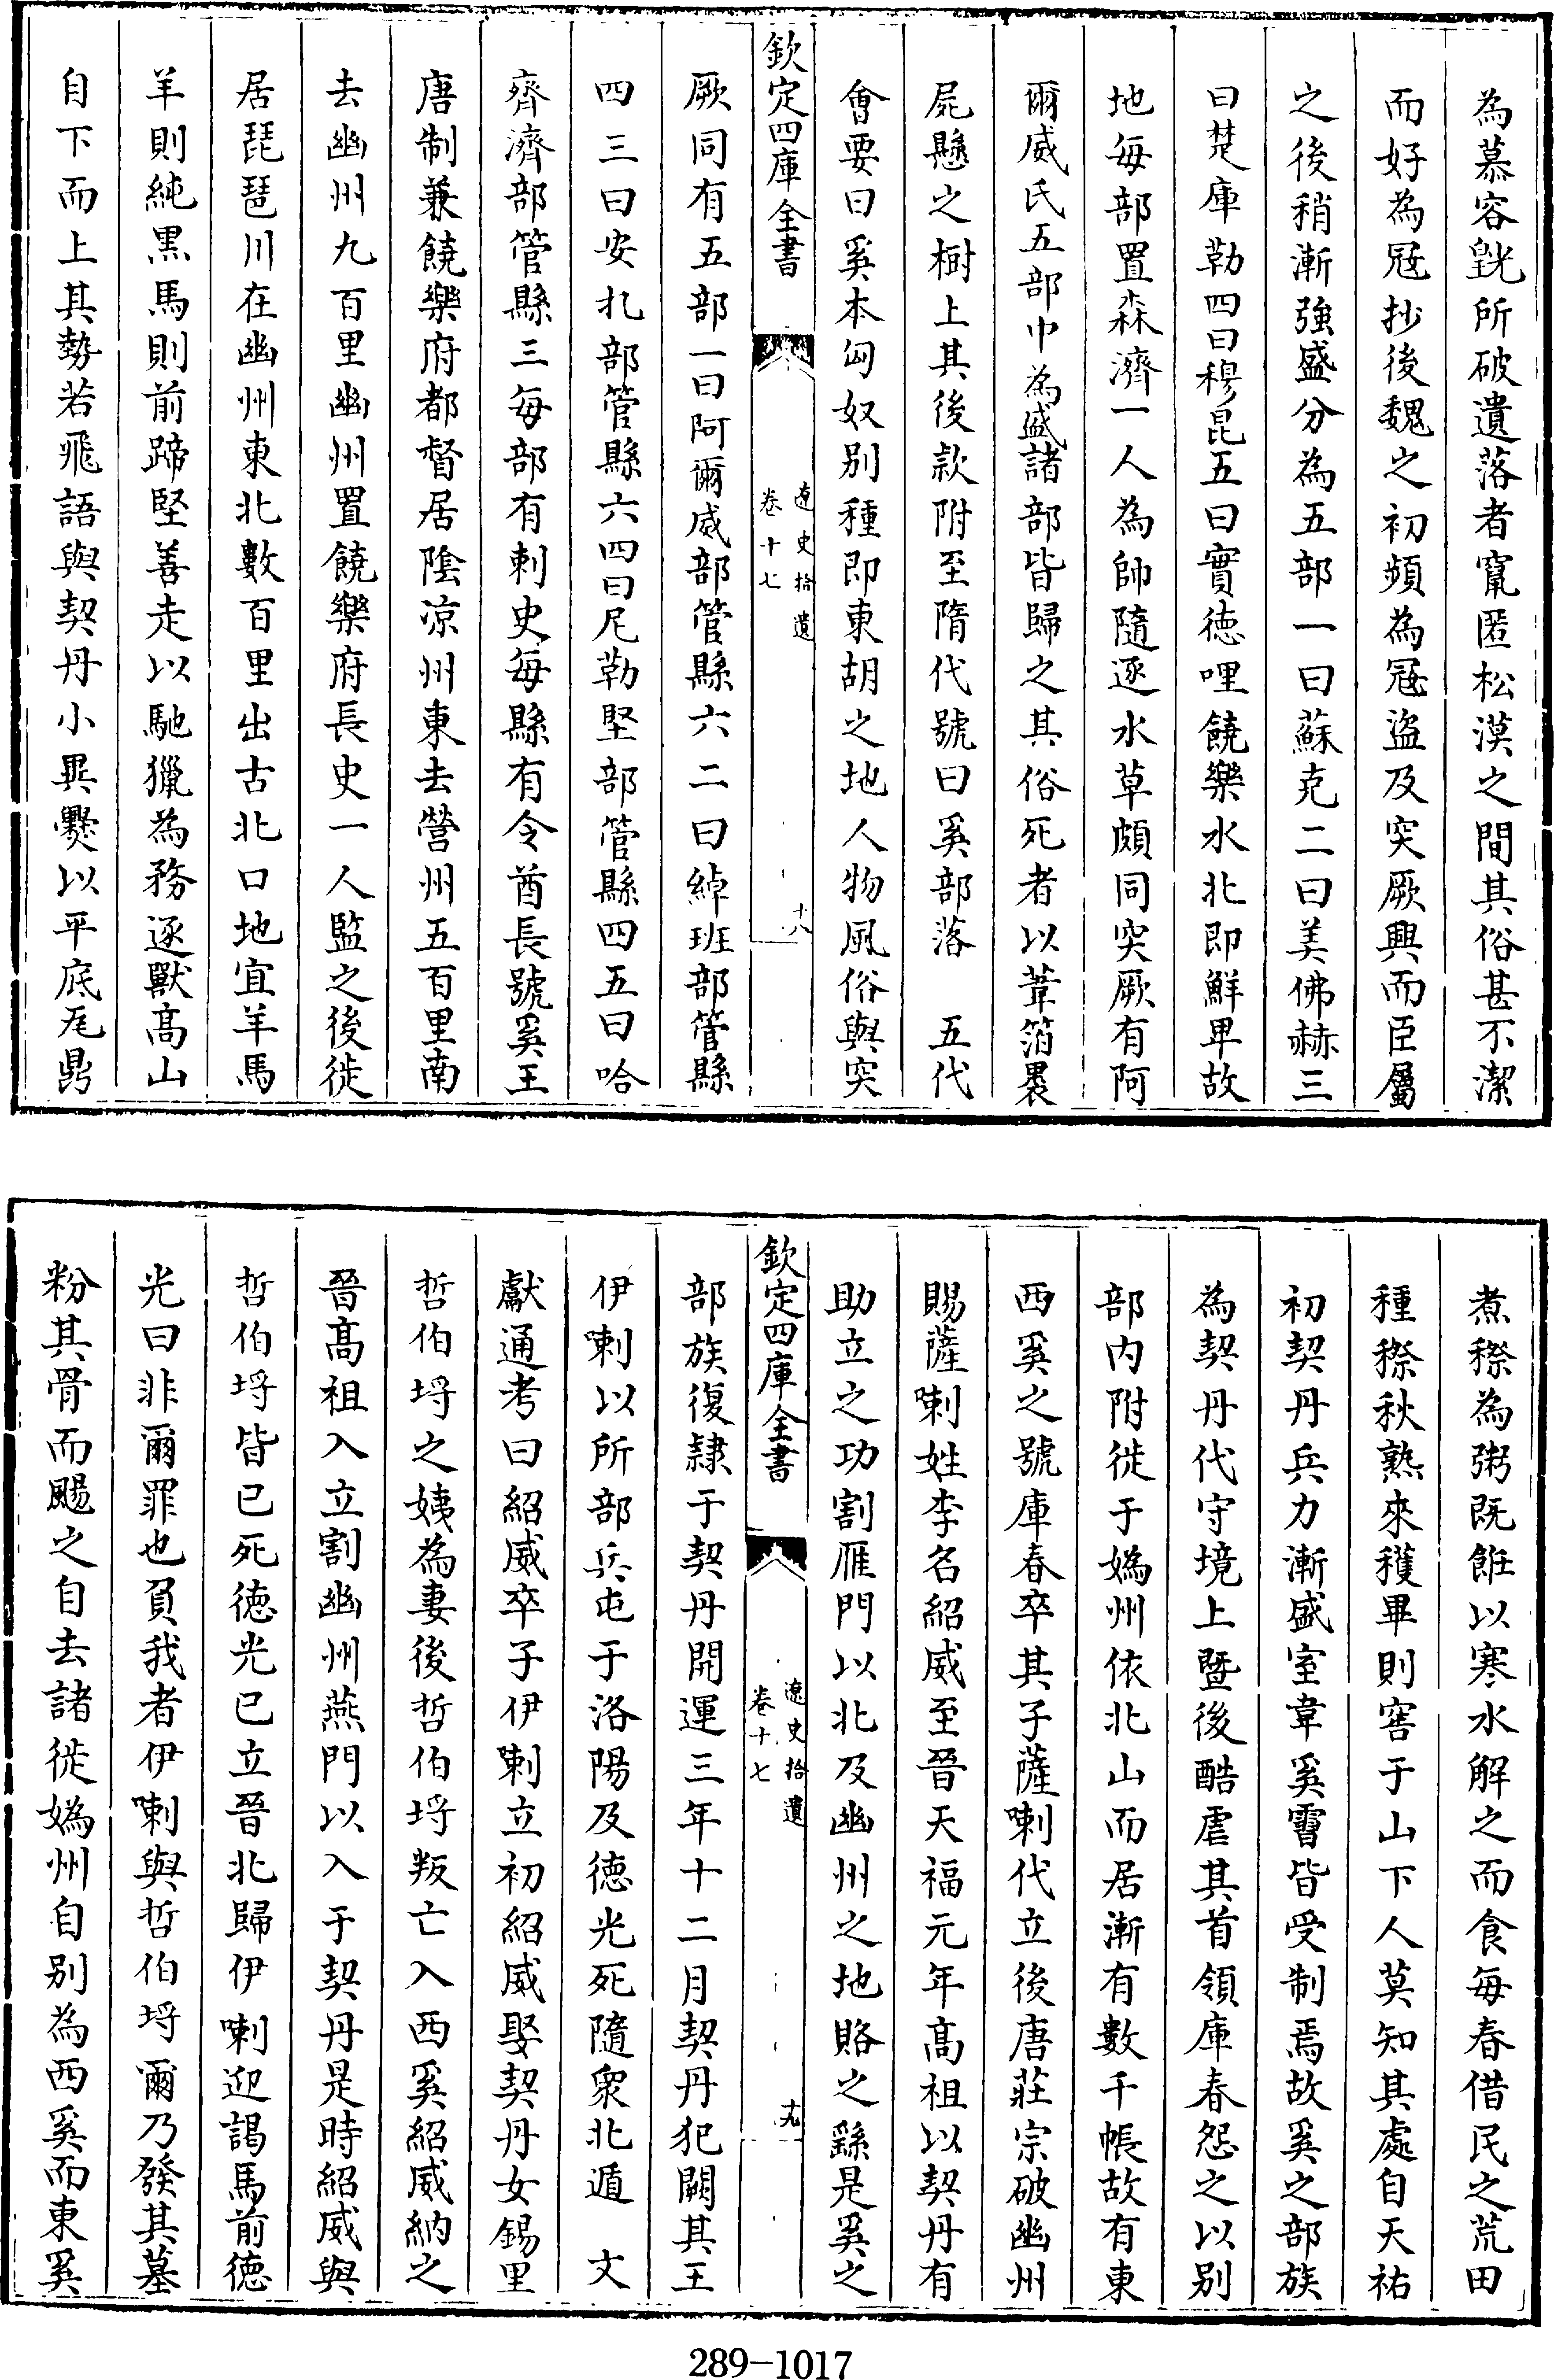 為慕容皝所破遺落者竄匿松漠之間其俗甚不潔
而好為冦抄後魏之初頻為冦盜及突厥興而臣屬
之後稍漸強盛分為五部一曰蘇克二曰美佛赫三
曰楚庫勒四曰穆昆五曰實德哩饒樂水北即鮮卑故
地每部置森濟一人為帥隨逐水草頗同突厥有阿
爾威氏五部中為盛諸部皆歸之其俗死者以葦箔褁
屍懸之樹上其後款附至隋代號曰奚部落　五代
會要曰奚本匈奴别種即東胡之地人物風俗與突
欽定四庫全書
遼史拾遺
卷十七
十八
厥同有五部一曰阿爾威部管縣六二曰綽班部管縣
四三曰安扎部管縣六四曰尼勒堅部管縣四五曰哈
齊濟部管縣三每部有刺史每縣有令酋長號奚王
唐制兼饒樂府都督居陰凉州東去營州五百里南
去幽州九百里幽州置饒樂府長史一人監之後徙
居琵琶川在幽州東北數百里出古北口地宜羊馬
羊則純黑馬則前蹄堅善走以馳獵為務逐獸高山
自下而上其勢若飛語與契丹小異爨以平底瓦鼎
煮穄為粥既飪以寒水解之而食每春借民之荒田
種穄秋熟來穫畢則窖于山下人莫知其處自天祐
初契丹兵力漸盛室韋奚霫皆受制焉故奚之部族
為契丹代守境上暨後酷虐其首領庫春怨之以别
部内附徙于媯州依北山而居漸有數千帳故有東
西奚之號庫春卒其子薩喇代立後唐莊宗破幽州
賜薩喇姓李名紹威至晉天福元年高祖以契丹有
助立之功割雁門以北及幽州之地賂之繇是奚之
欽定四庫全書
遼史拾遺
卷十七
十九
部族復隷于契丹開運三年十二月契丹犯闕其王
伊喇以所部兵屯于洛陽及徳光死隨衆北遁　文
獻通考曰紹威卒子伊喇立初紹威娶契丹女錫里
哲伯埒之姨為妻後哲伯埒叛亡入西奚紹威納之
晉高祖入立割幽州燕門以入于契丹是時紹威與
哲伯埒皆已死徳光已立晉北歸伊喇迎謁馬前徳
光曰非爾罪也負我者伊喇與哲伯埒爾乃發其墓
粉其骨而颺之自去諸徙媯州自别為西奚而東奚
289-1017